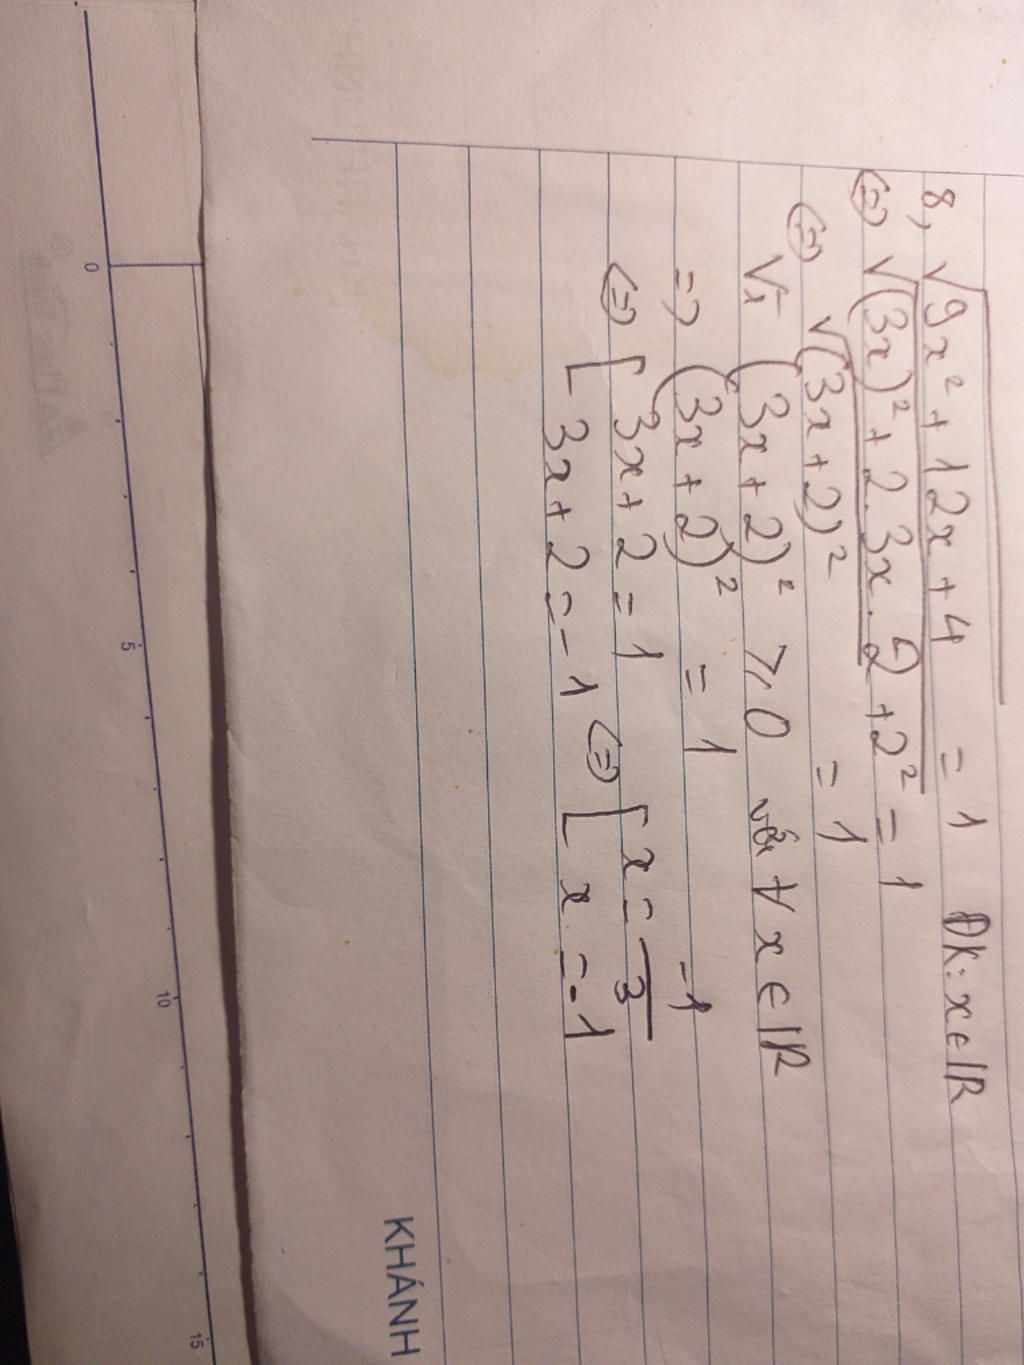 8, √9x² + 12x + 4 = 1 ĐK: x ∈ R
⇔ √(3x)² + 2.3x.2 + 2² = 1
⇔ √(3x + 2)² = 1
Vì (3x + 2)² ⩾ 0 với ∀ x ∈ R
=> (3x + 2)² = 1
⇔ [ 3x + 2 = 1 ⇔ [ x = -1/3
[ 3x + 2 = -1 [ x = -1
KHÁNH
0 5 10 15